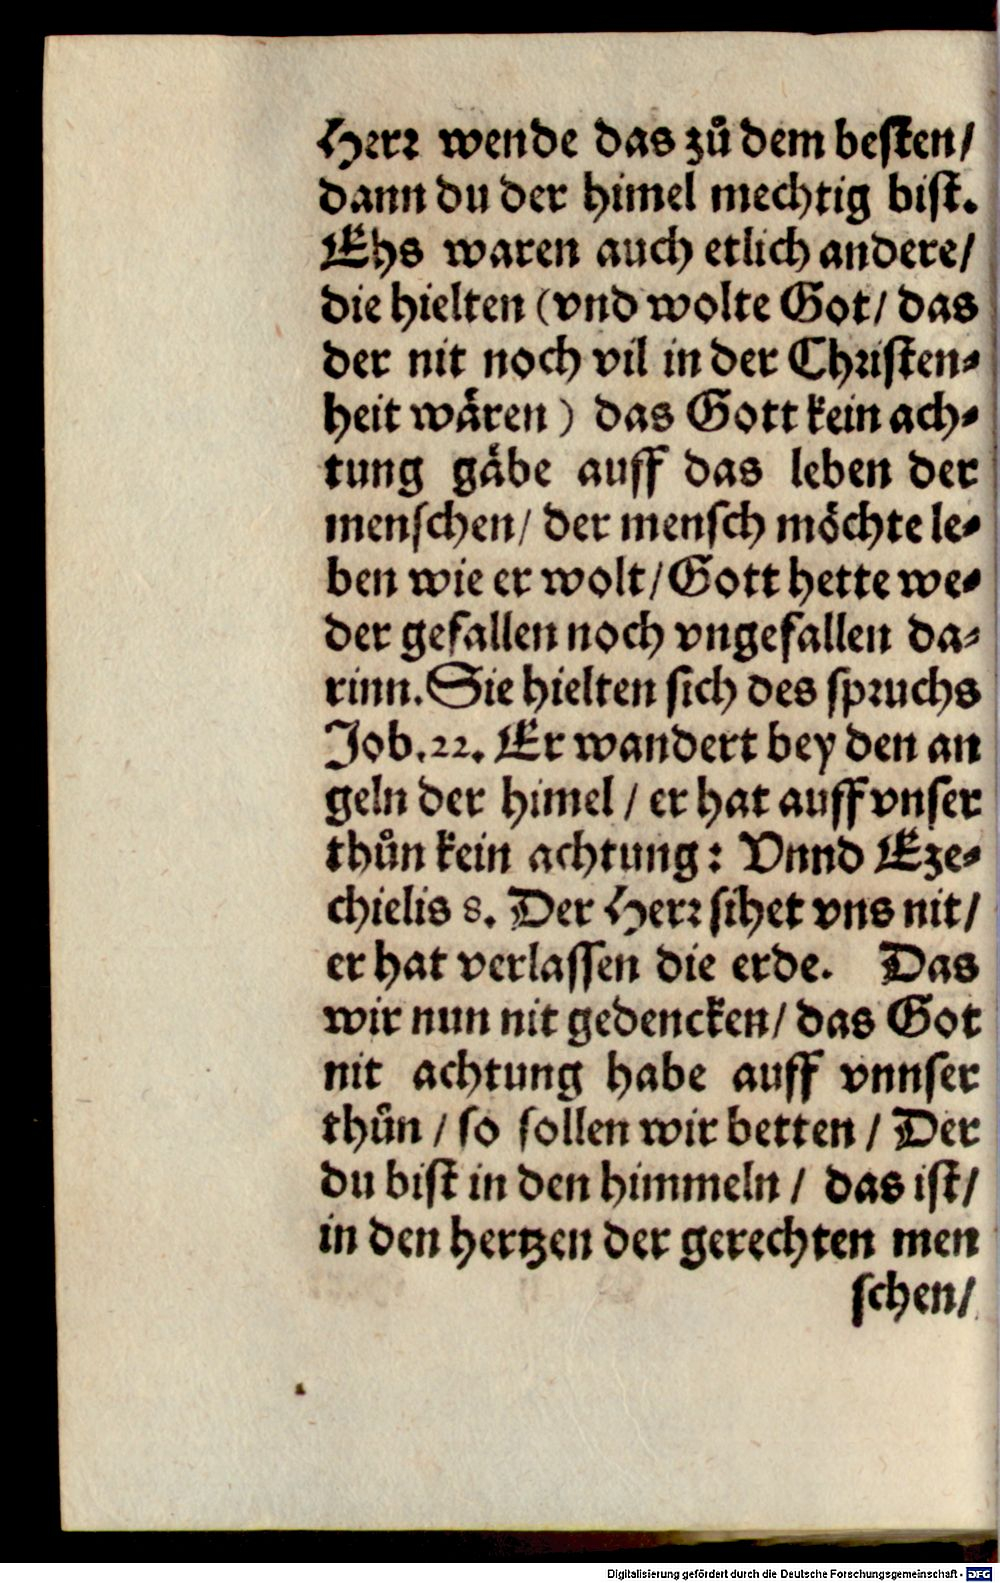 Herr wende das zuͦ dem besten/
dann du der himel mechtig bist.
Ehs waren auch etlich andere/
die hielten (vnd wolte Got/ das
der nit noch vil in der Christen-
heit waͤren) das Gott kein ach-
tung gaͤbe auff das leben der
menschen/ der mensch moͤchte le-
ben wie er wolt/ Gott hette we-
der gefallen noch vngefallen da-
rinn. Sie hielten sich des spruchs
Job. 22. Er wandert bey den an
geln der himel / er hat auff vnser
thuͦn kein achtung: Vnnd Eze-
chielis 8. Der Herr sihet vns nit/
er hat verlassen die erde. Das
wir nun nit gedencken/ das Got
nit achtung habe auff vnnser
thuͦn / so sollen wir betten / Der
du bist in den himmeln / das ist/
in den hertzen der gerechten men
schen/
Digitalisierung gefördert durch die Deutsche Forschungsgemeinschaft - DFG